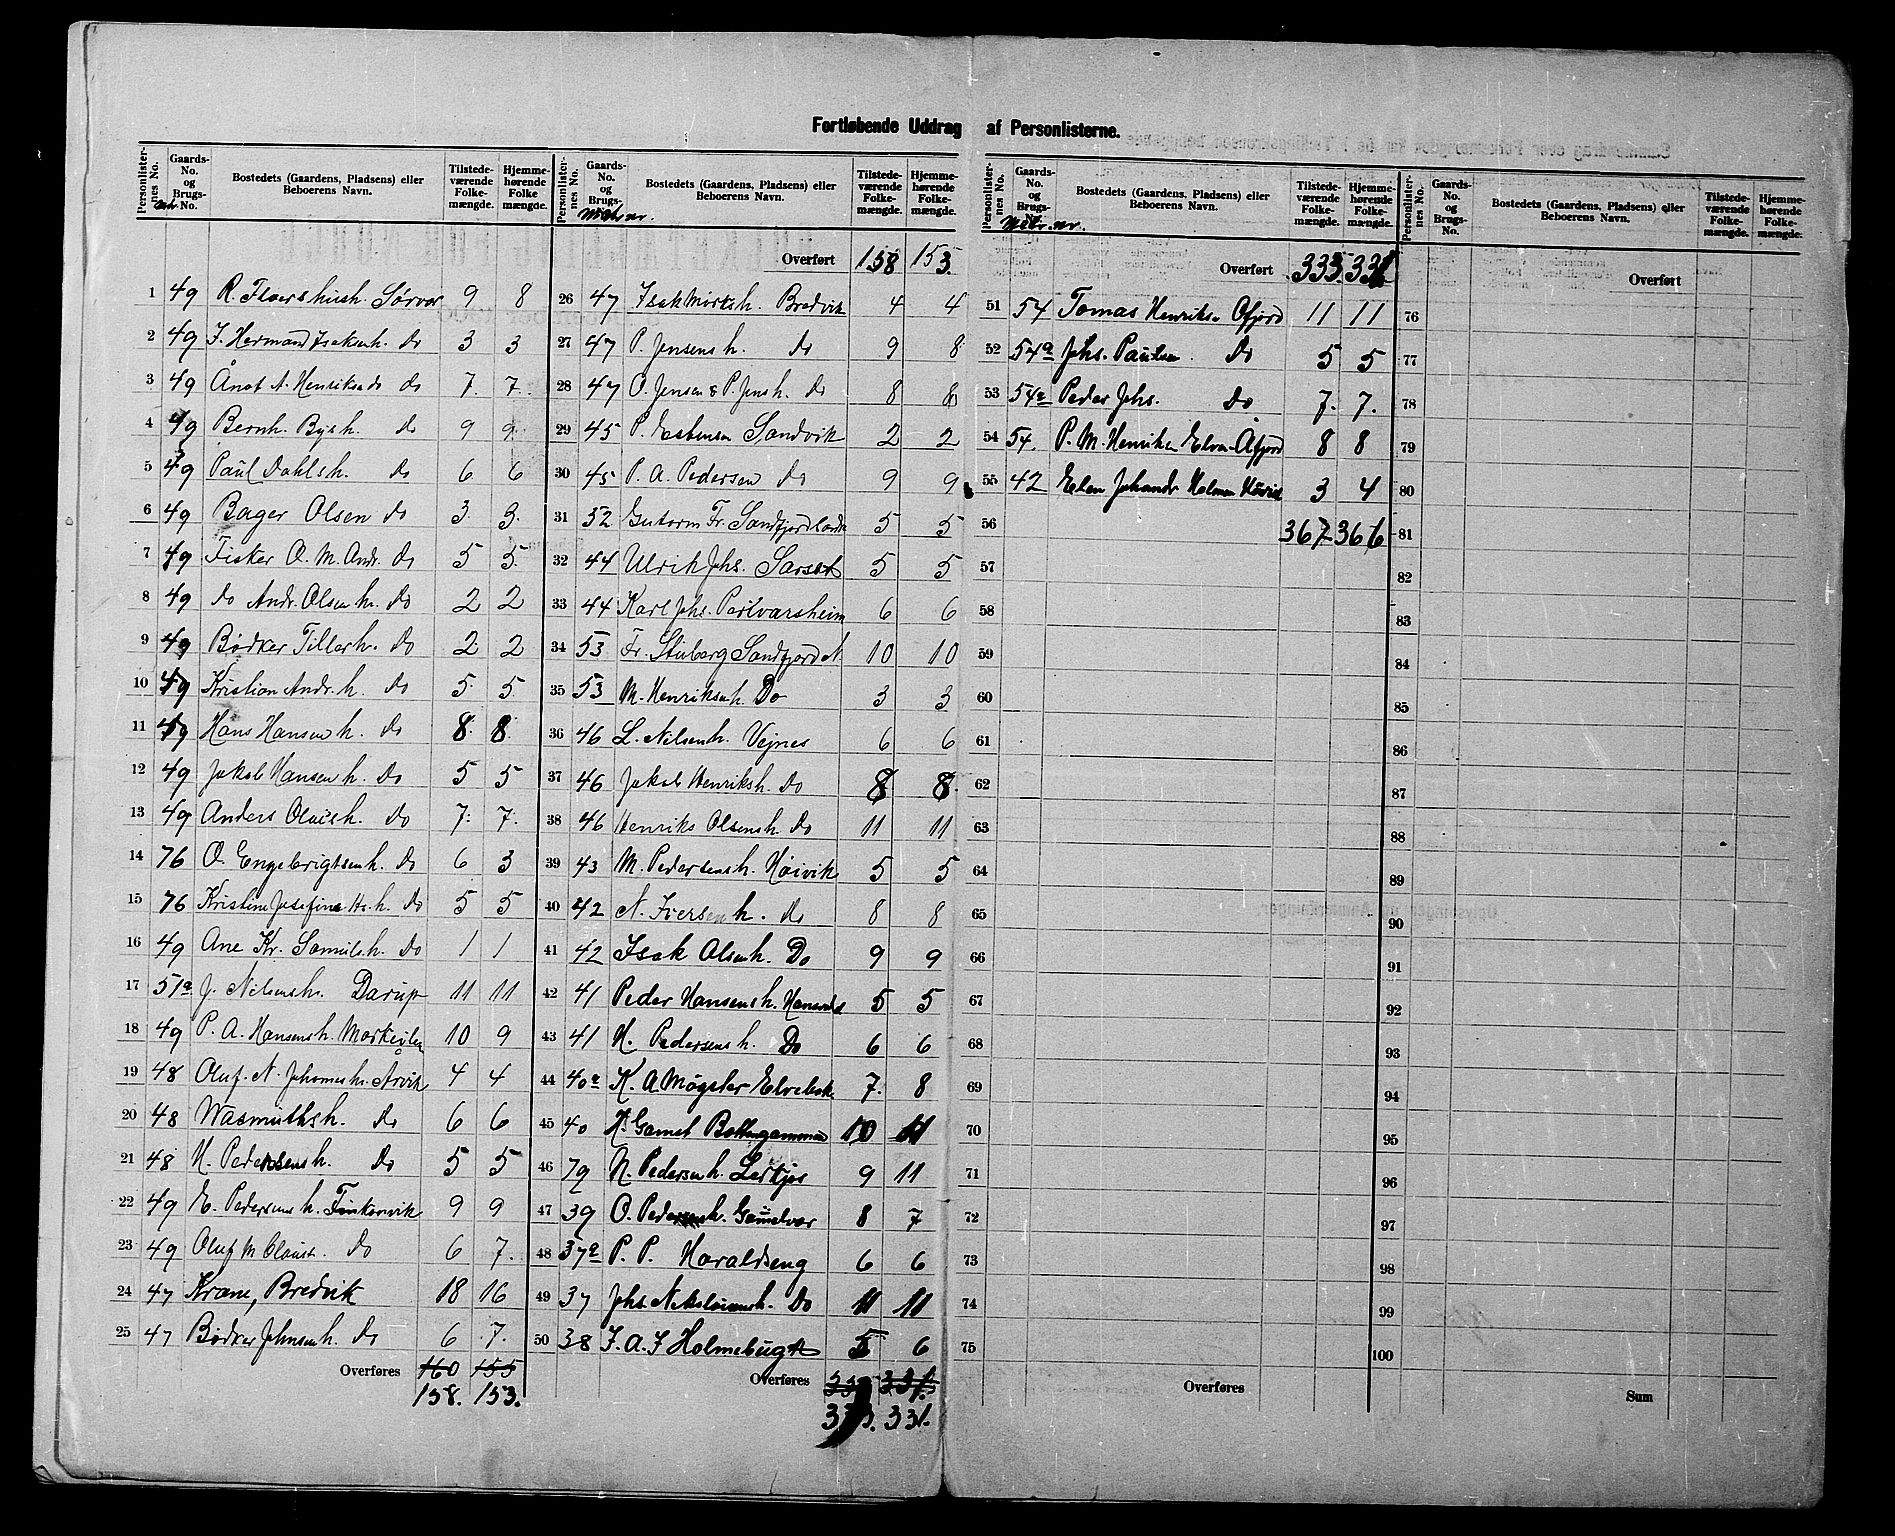 Fortløbende Uddrag af Personlisterne.
Personlister-nes No. Gaards-No. og Brugs-No. Bostedets (Gaardens, Pladsens) eller Beboerens Navn. Tilstede-værende Folke-mængde. Hjemme-hørende Folke-mængde.
1 49 R. Sørvær 9 8
2 49 J. Herman Isaksenh. do 3 3
3 49 A. Henriksens do 7. 7.
4 49 Bernh. Bysh. do 9 9
5 49 Paul Dahlsh. do 6 6
6 49 Bager Olsen do 3. 3.
7 49 Fisker O. M. Andr. do 5 5.
8 49 do Andr. Olsen h. do 2 2
9 49 Bødker Tillerh. do 2 2
10 49 Kristian Andr. h. do 5. 5
11 49 Hans Hansen h. do 8. 8.
12 49 Jakob Hansen h. do 5 5
13 49 Anders Olaish. do 7. 7.
14 76 O. Engebrigtsenh. do 6 3
15 76 Kristine Josefine Hs. h. do 5 5
16 49 Ane Kr. Samuelsh. do 1 1
17 51a J. Nilsensh. Darup 11 11
18 49 P. A. Hansensh. 10 9
19 48 Oluf. N. Årvik 4 4
20 48 Wasmuthsh. do 6 6
21 48 H. Pedersensh. do 5 5
22 49 E. Pedersens h. Finkonvik 9 9
23 49 Oluf M. do 6 7.
24 47 Krane, Bredvik 18 16
25 47 Bødker Johnsenh. do 6 7.
Overføres 160 155
158. 153.
Personlister-nes No. Gaards-No. og Brugs-No. Matr. nr. Bostedets (Gaardens, Pladsens) eller Beboerens Navn. Tilstede-værende Folke-mængde. Hjemme-hørende Folke-mængde.
Overført 158 153
26 47 Isak Mørksh. Bredvik 4 4
27 47 P. Jensens h. do 9 8
28 47 O. Jensen & P. Jens h. do 8 8
29 45 P. Esbensen Sandvik 2 2
30 45 P. A. Pedersen do 9 9
31 52 Gutorm Fr. 5 5
32 44 Ulrik Johs. 5 5
33 44 Karl Johs. 6 6
34 53 Fr. Stuberg Sandfjord N. 10 10
35 53 M. Henriksenh. Do 3 3
36 46 L. Nilsenh. Vejnes 6 6
37 46 Jakob Henriksh. Do 8 8.
38 46 Henriks Olsensh. Do 11 11
39 43 M. Pedersensh. Høivik 5 5
40 42 N. Iversen h. do 8 8
41 42 Isak Olsenh. Do 9 9
42 41 Peder Hansensh. 5 5
43 41 H. Pedersens h. Do 6 6
44 40a K. A Møgster 7. 8
45 40 Bottengammen 10 11
46 79 N. Pedersenh. 9 11
47 39 O. Pedersenh. Gamelvær 8 7
48 37a P. P. Haraldseng 6 6
49 37 Johs. Do 11 11
50 38 J. A. J Holmebugt 5 6
Overføres 331.
333. 331.
Personlister-nes No. Gaards-No. og Brugs-No. Matr. nr. Bostedets (Gaardens, Pladsens) eller Beboerens Navn. Tilstede-værende Folke-mængde. Hjemme-hørende Folke-mængde.
Overført 333. 331
51 54 Tomas Henriksen Ofjord 11 11
52 54a Johs. Paulsen Do 5 5
53 54a Peder Johs. Do 7. 7.
54 54. P. M. Henriksen Åfjord 8 8
55 42 Elen 3 4
56 367 366
57
58
59
60
61
62
63
64
65
66
67
68
69
70
71
72
73
74
75
Overføres
Personlister-nes No. Gaards-No. og Brugs-No. Bostedets (Gaardens, Pladsens) eller Beboerens Navn. Tilstede-værende Folke-mængde. Hjemme-hørende Folke-mængde.
Overført
76
77
78
79
80
81
82
83
84
85
86
87
88
89
90
91
92
93
94
95
96
97
98
99
100
Sum